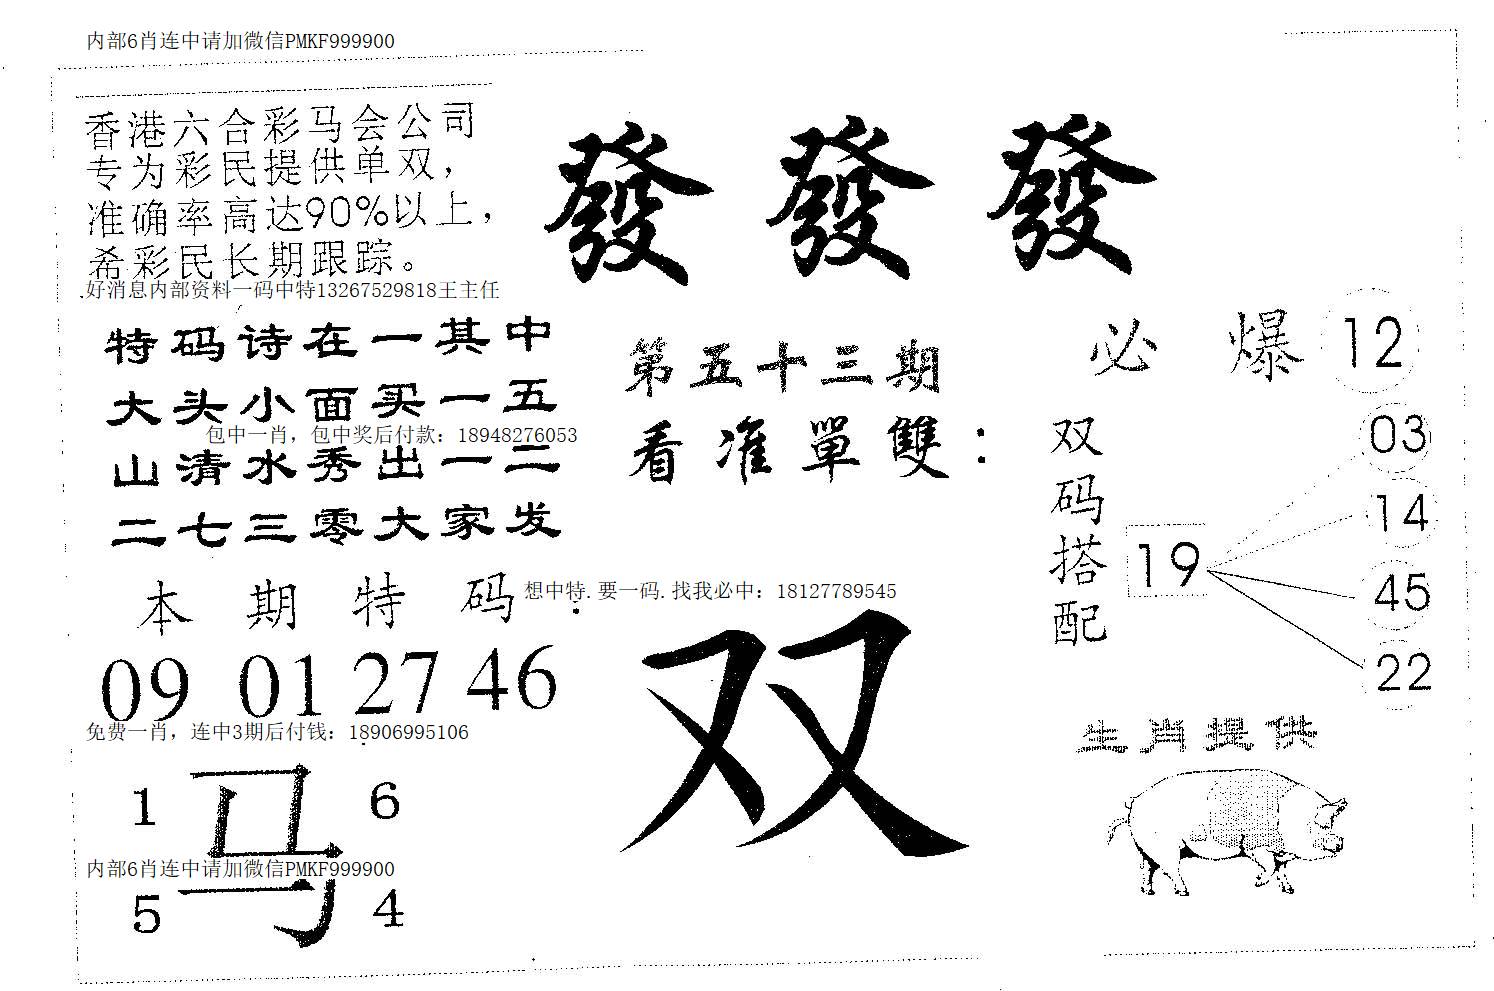 内部6肖连中请加微信PMKF999900
香港六合彩马会公司
专为彩民提供单双，
准确率高达90%以上，
希彩民长期跟踪。
好消息内部资料一码中特13267529818王主任
發發發
特码诗在一其中
大头小面买一五
包中一肖，包中奖后付款：18948276053
山清水秀出一二
二七三零大家发
第五十三期
看准單雙：
必爆12
双码搭配
19
03
14
45
22
本期特码：
想中特.要一码.找我必中：18127789545
09 01 27 46
免费一肖，连中3期后付钱：18906995106
双
生肖提供
1 6
马
内部6肖连中请加微信PMKF999900
5 4